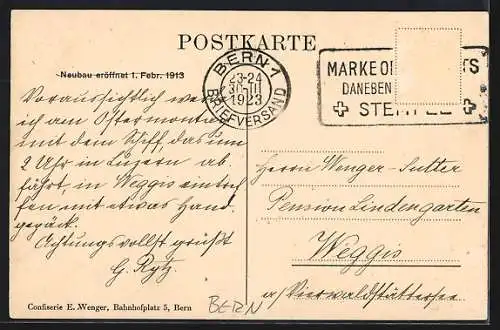 POSTKARTE
Neubau eröffnet 1. Febr. 1913
BERN 1
23-24
30.III
1923
BRIEFVERSAND
MARKE OBEN RECHTS
DANEBEN
STEMPEL
Voraussichtlich werde
ich am Ostermontag
mit dem Schiff, das um
2 Uhr in Luzern ab
fährt, in Weggis eintref
fen mit etwas Hand
gepäck.
Achtungsvollst grüßt
G. Rytz.
Herrn Wenger-Sutter
Pension Lindengarten
Weggis
a/ Vierwaldstättersee
Confiserie E. Wenger, Bahnhofplatz 5, Bern
BERN